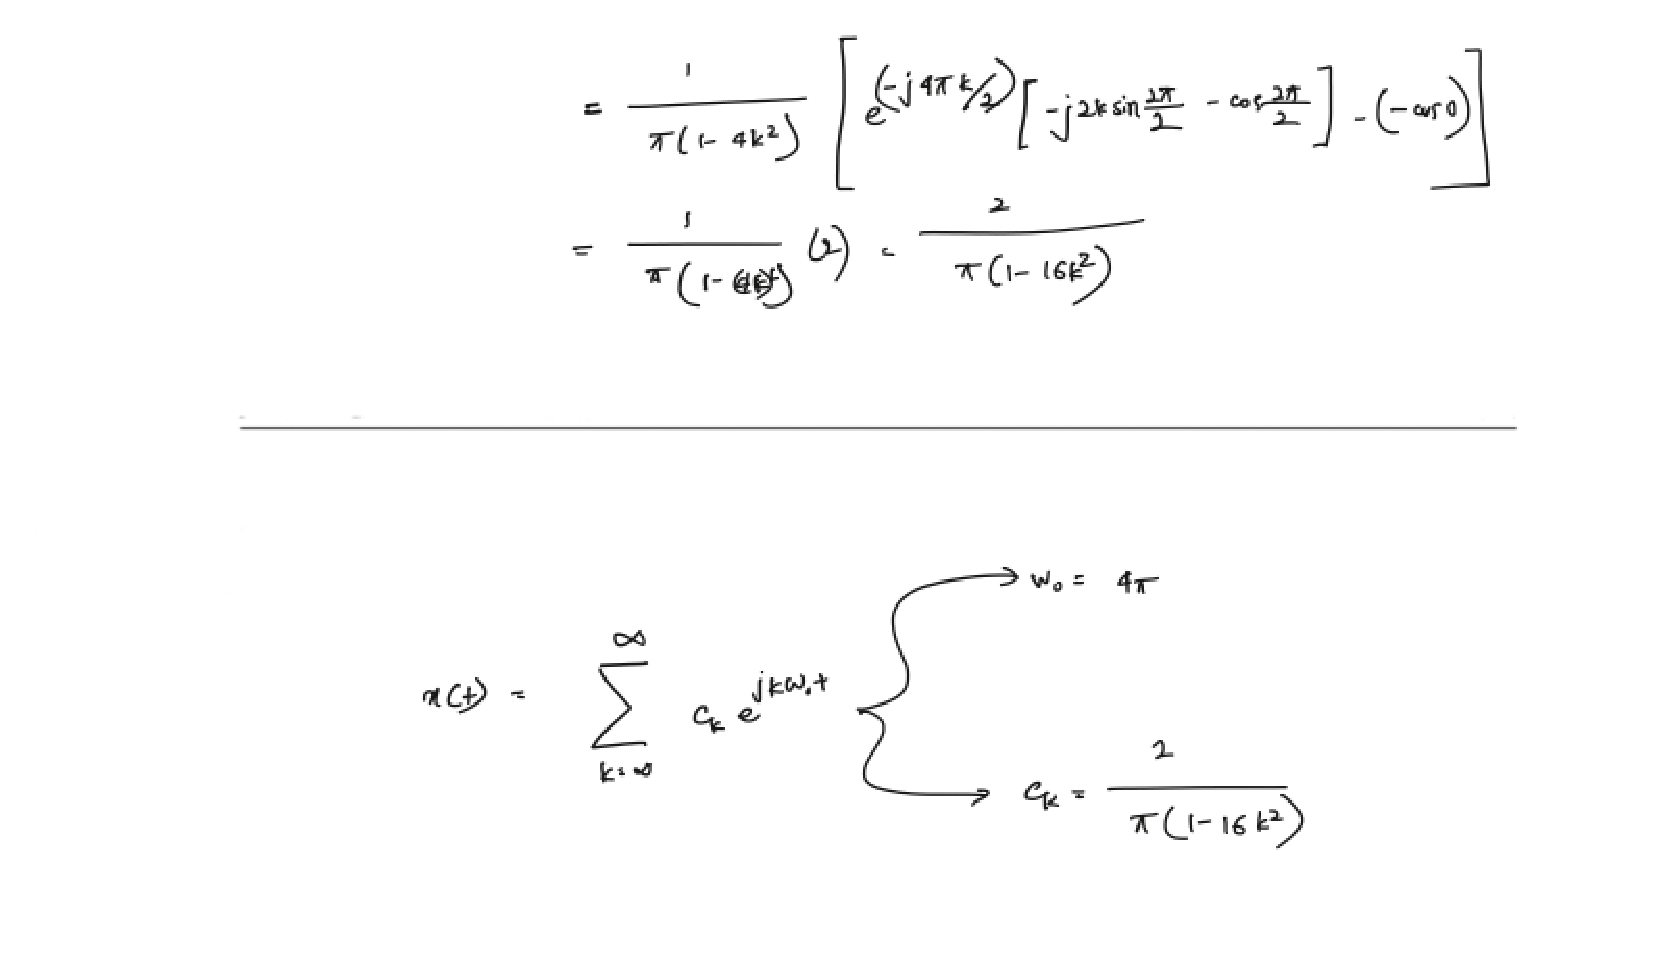 = 1/(π(1-4k²)) [e^(-j4πk/2) [-j2k sin 2π/2 - cos 2π/2] - (-cos 0)]
= 1/(π(1- )) (2) = 2/(π(1-16k²))
x(t) = ∑_{k=∞}^{∞} c_k e^{jkω₀t}
w₀ = 4π
c_k = 2/(π(1-16k²))